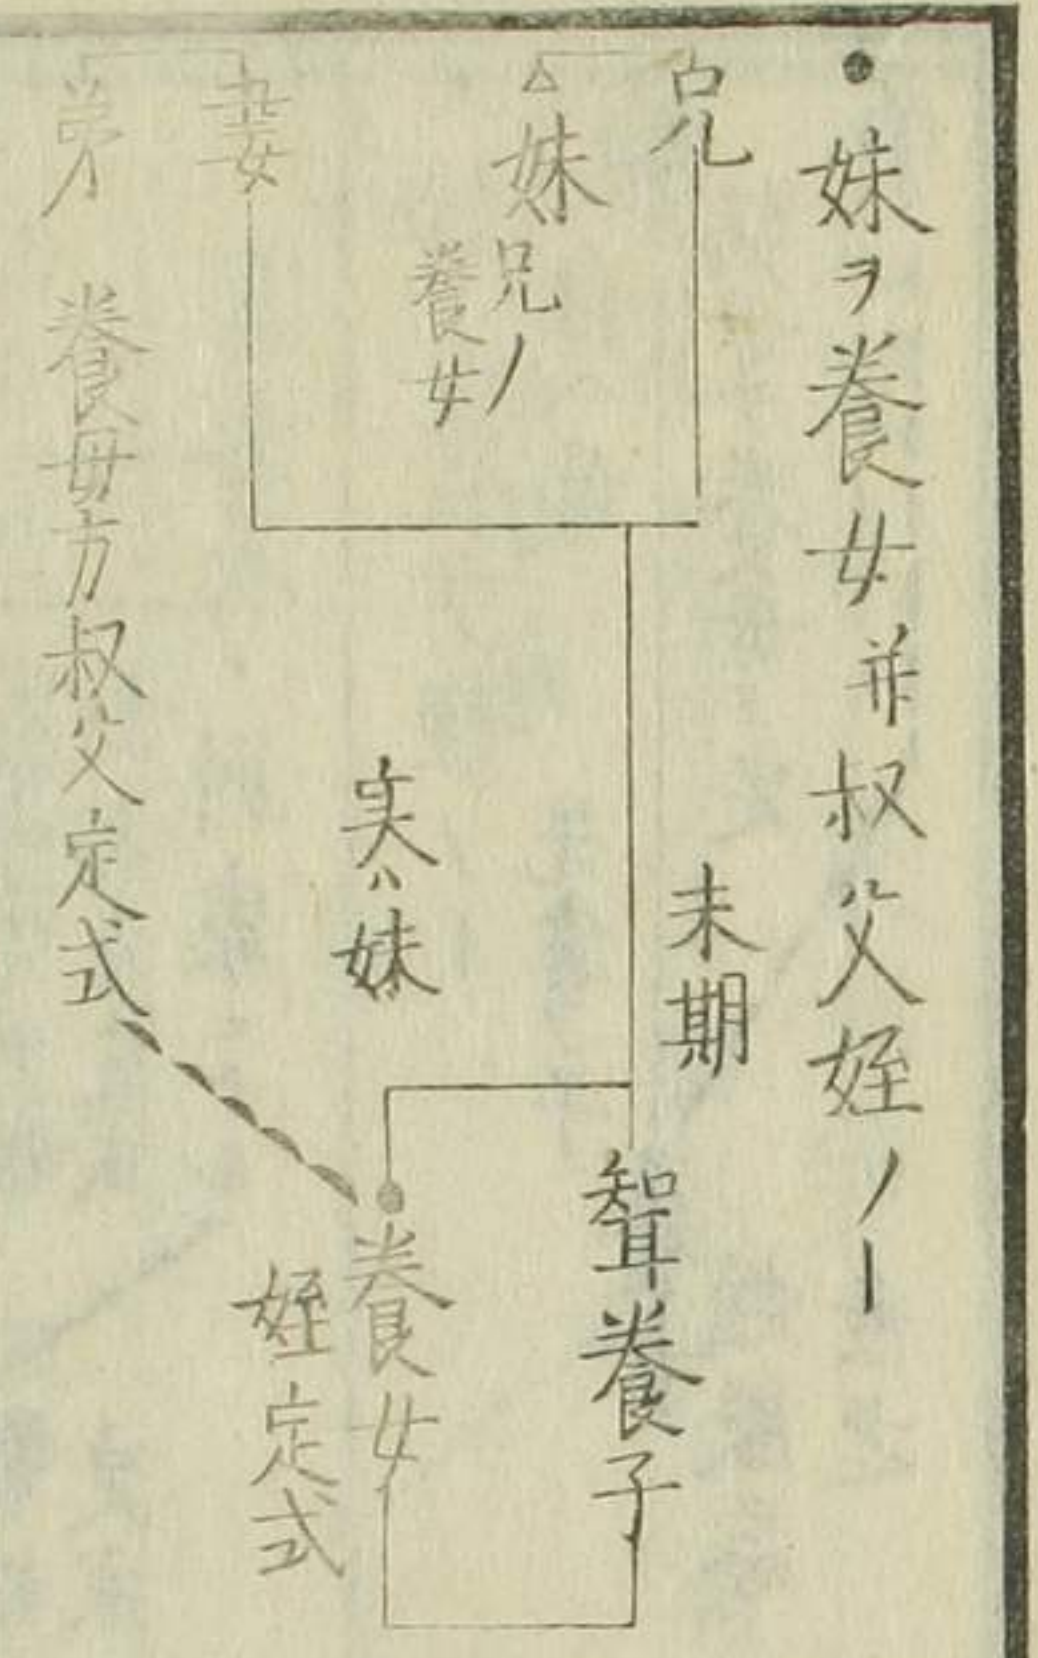 ●妹ヲ養女并叔父姪ノ｜
兄
末期
聟養子
△妹
兄ノ
養女
妻
実ハ妹
養女
姪定式
弟
養母方叔父定式